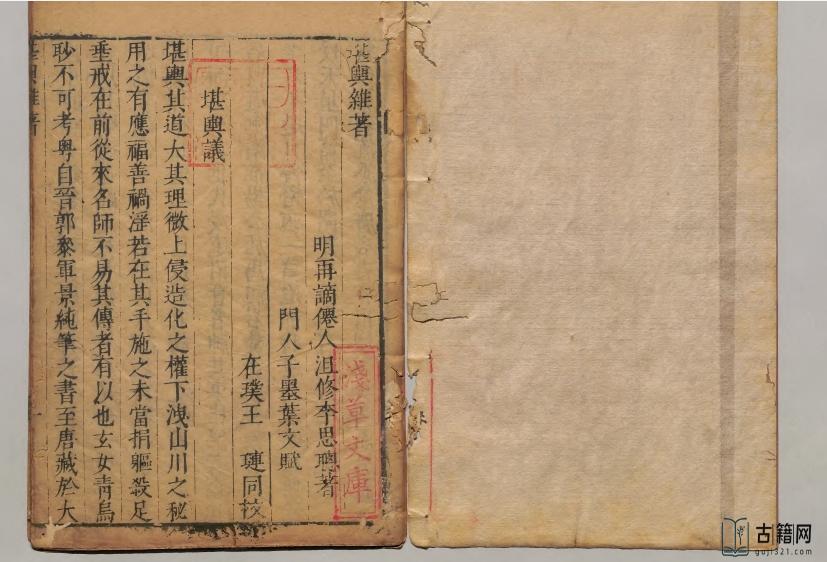 堪輿雜著
明再謫僊人沮修李思聰著
門人子墨葉文賦
在璞王　璉同校
堪輿議
堪輿其道大其理微上侵造化之權下洩山川之秘
用之有應福善禍淫若在其手施之未當捐軀殺足
垂戒在前從來名師不易其傳者有以也玄女青烏
眇不可考粤自晉郭參軍景純筆之書至唐藏於大
堪輿雜著
一
淺草文庫
古籍网
guji321.com